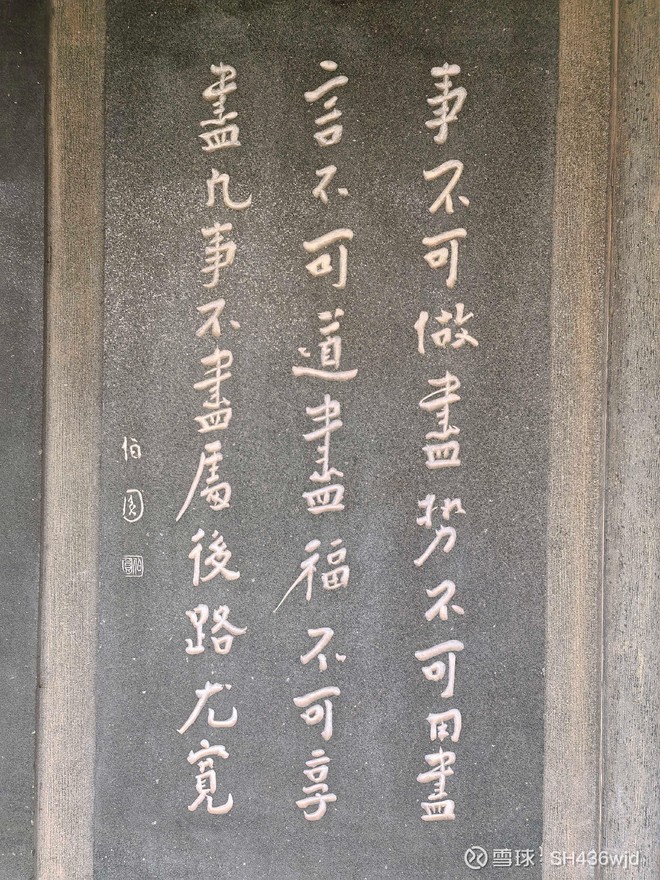 事不可做盡勢不可用盡
言不可道盡福不可享
盡凡事不盡處後路尤寬
伯圓
雪球：SH436wjd